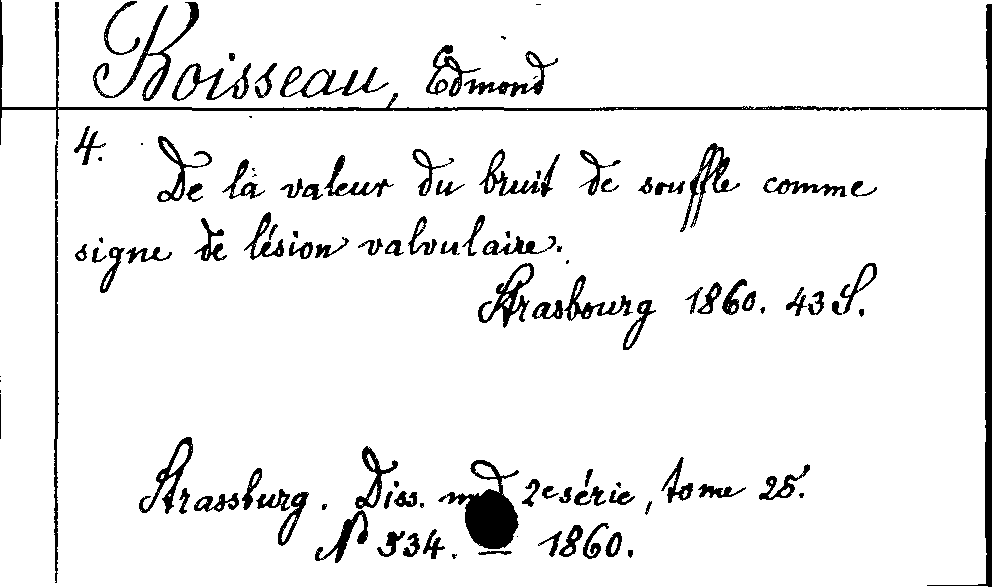 Boisseau, Edmond
4.
De la valeur du bruit de souffle comme
signe de lésion valvulaire.
Strasbourg 1860. 43 S.
Strassburg. Diss. med 2e série, tome 25.
N° 534. — 1860.